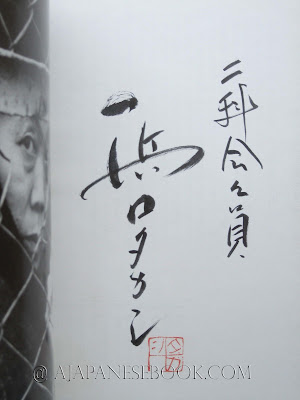 二科会々員
浜口タカシ
タカシ
@ AJAPANESEBOOK.COM